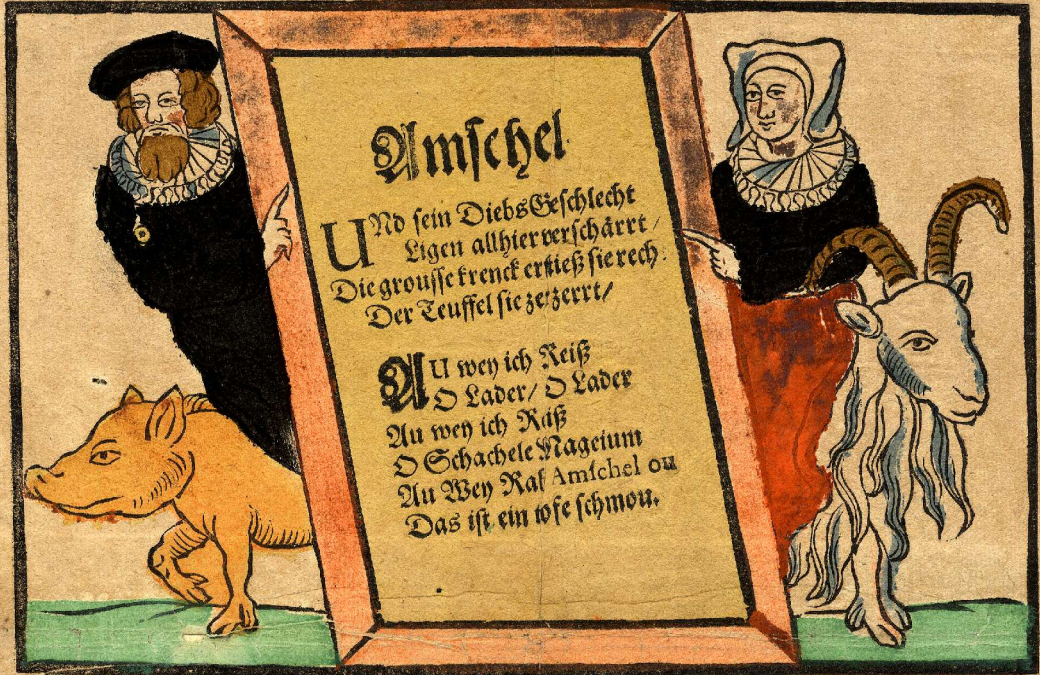 Amſchel
UNd ſein DiebsGeſchlecht
Ligen allhier verſchärrt /
Die grouſſe krenck erſtieß ſie rech:
Der Teuffel ſie zerzerrt /
AU wey ich Reiß
O Lader / O Lader
Au wey ich Räß
O Schachele Mageium
Au Wey Raf Amſchel ou
Das iſt ein wſe ſchmou.